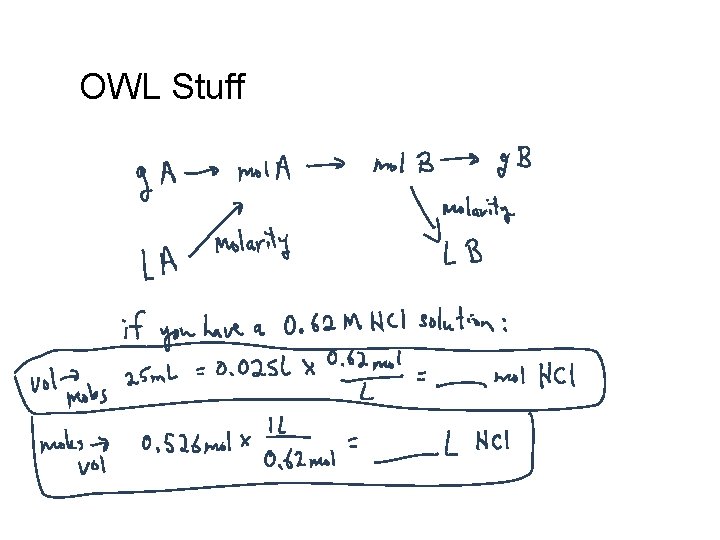 OWL Stuff
g A → mol A → mol B → g B
molarity
L A Molarity L B
if you have a 0.62 M HCl solution:
vol → moles 25mL = 0.025L x 0.62 mol / L = ___ mol HCl
moles → vol 0.526 mol x 1L / 0.62 mol = ___ L HCl